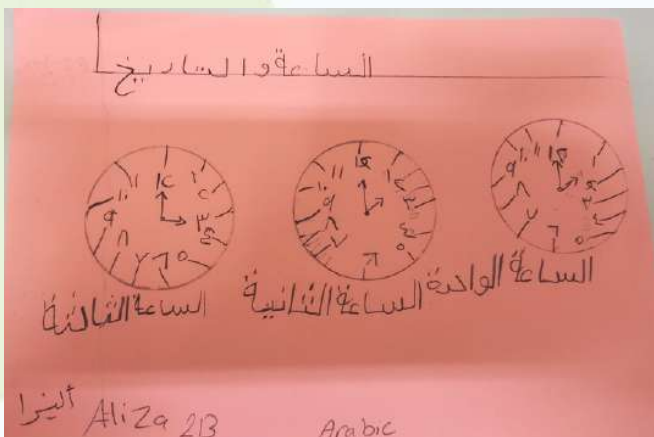 الساعة والتاريخ
الساعة الواحدة
الساعة الثانية
الساعة الثالثة
أليزا Aliza 2B Arabic